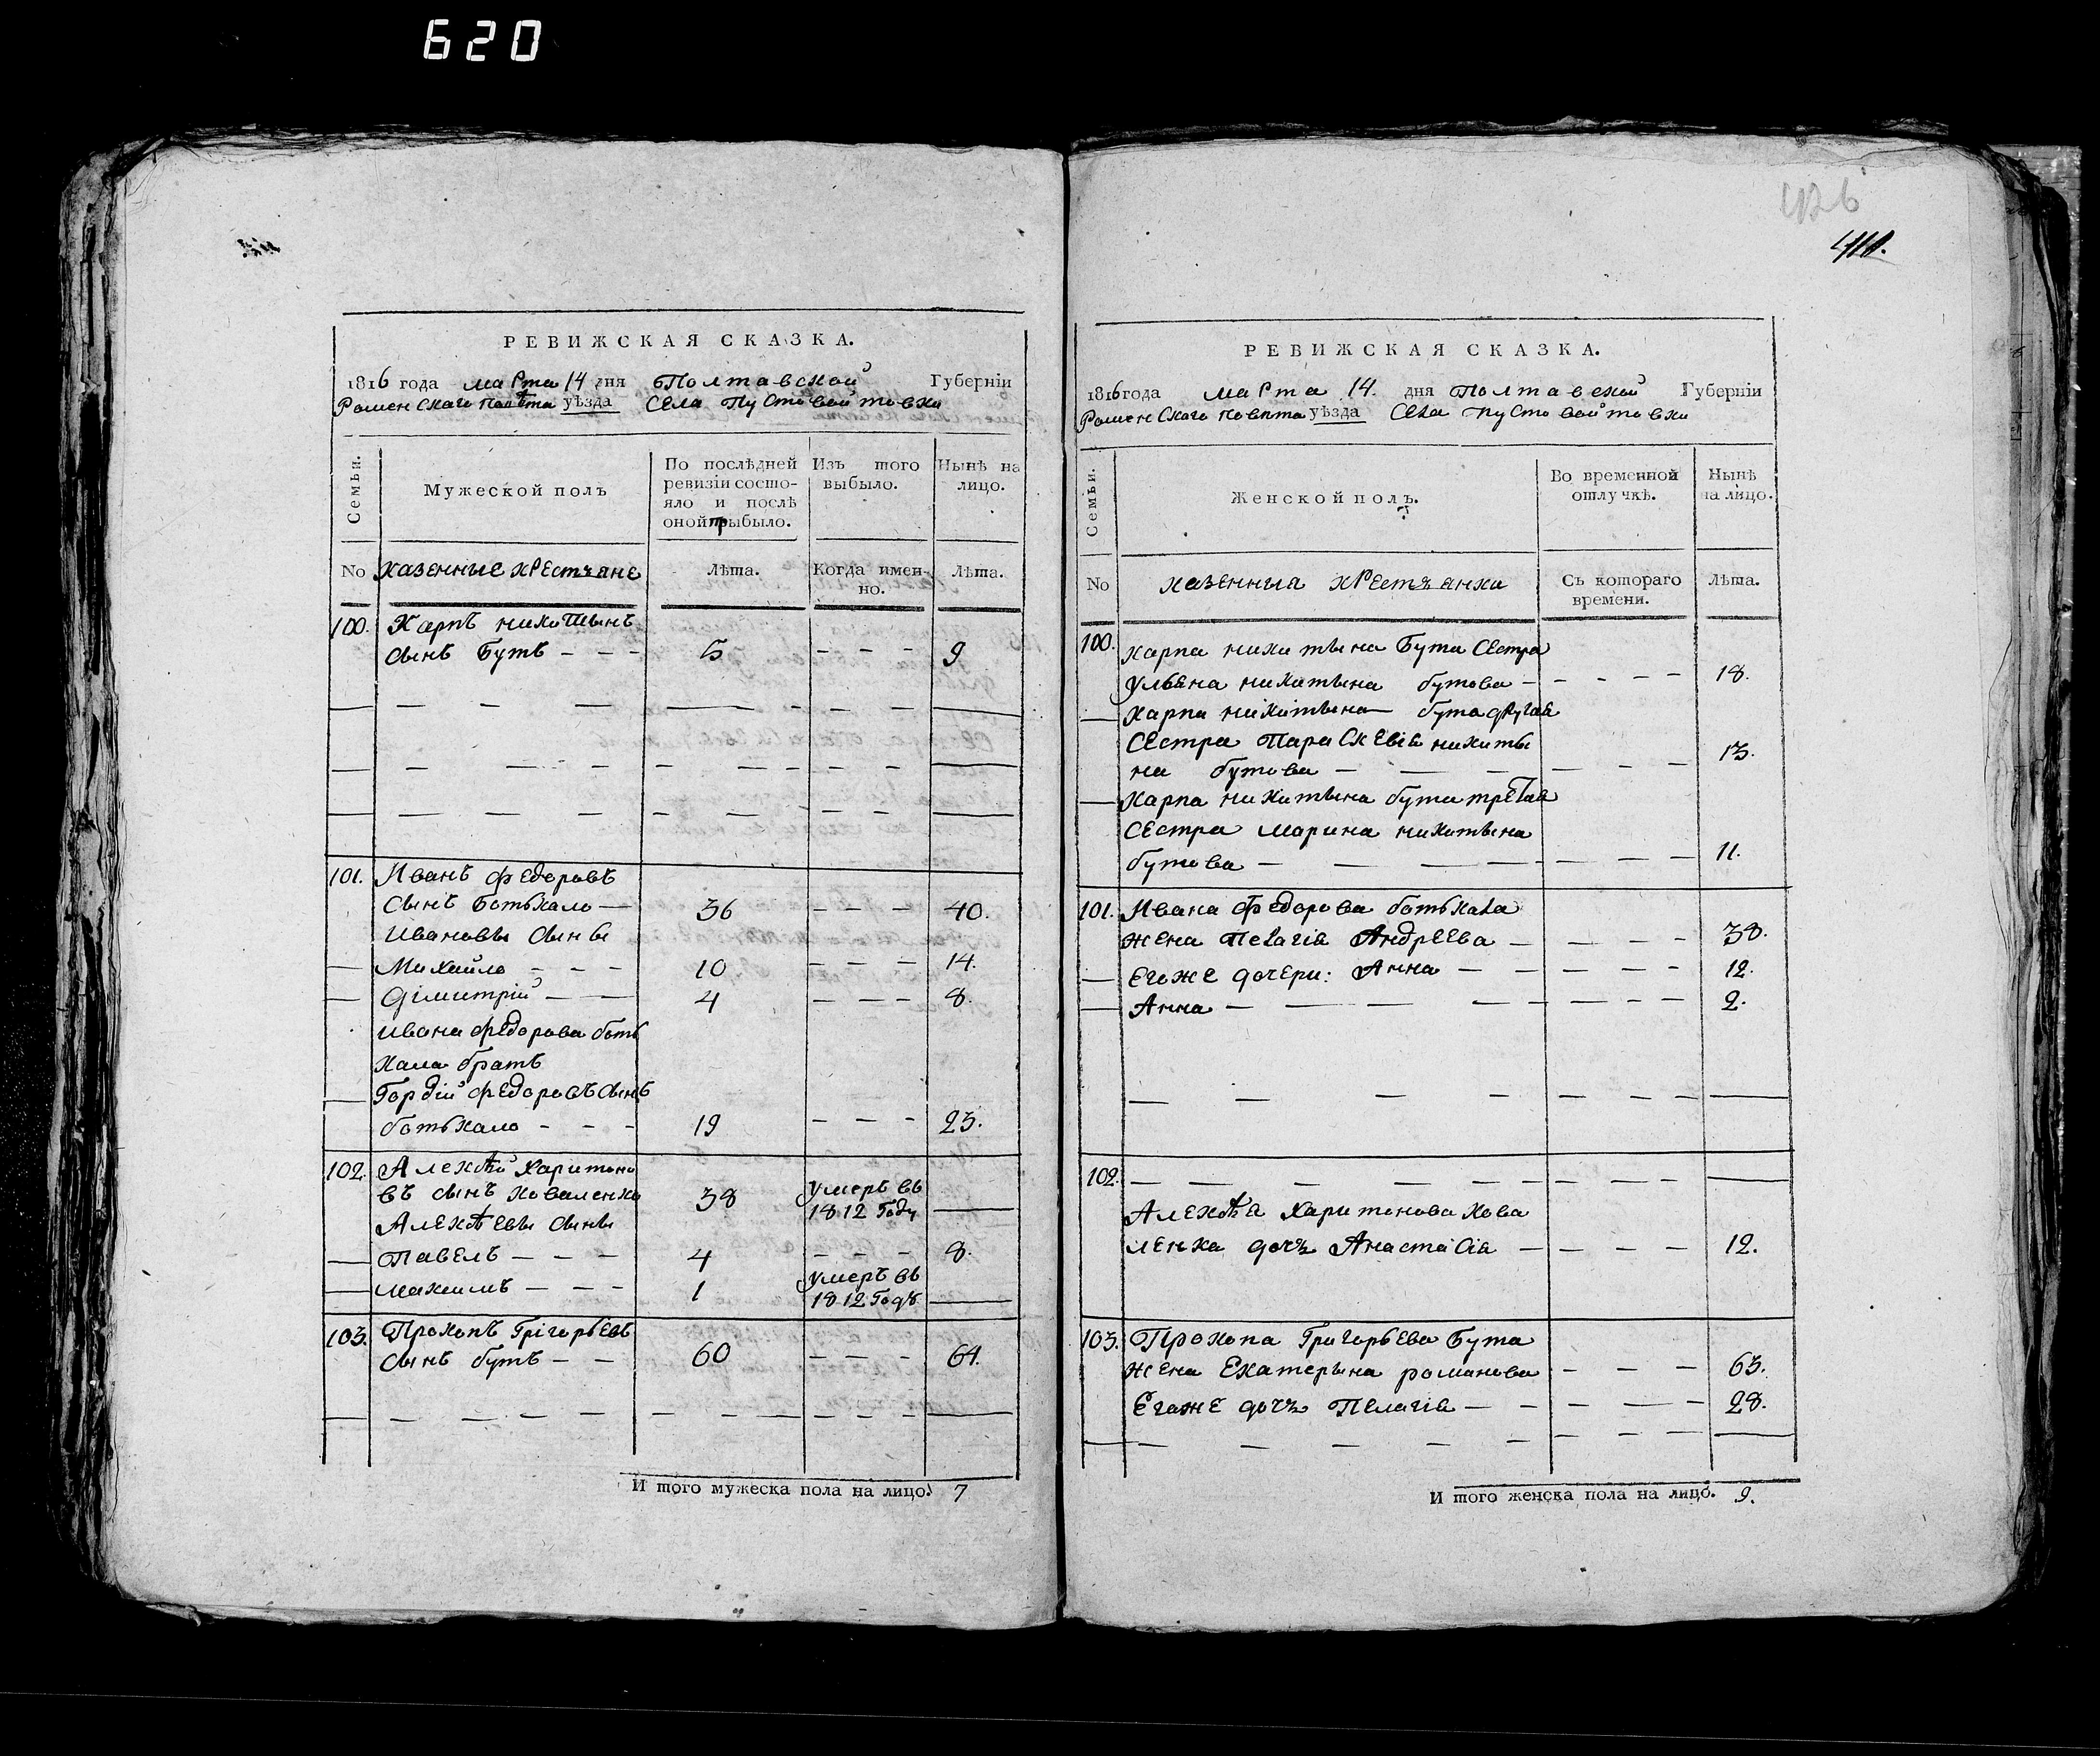 620
426
411.
РЕВИЖСКАЯ СКАЗКА.
1816 года марта 14 дня Полтавской Губернїи
Роменскаго Повѣта уѣзда Села Пустовойтовки
Семьи.
Мужеской полъ
По послѣдней
ревизїи состо-
яло и послѣ
оной прыбыло.
Изъ того
выбыло.
Нынѣ на
лицо.
No Казенные крестъяне
Лѣта.
Когда имен-
но.
Лѣта.
100. Карпъ никитынъ
сынъ Бутъ - - - 5 - - - 9
101. Иванъ федоровъ
сынъ Ботькало — 36 - - - 40.
Ивановы сыны
— Михайло - - - 10 - - - 14.
— Димитрїй — — 4 - - - 8.
Ивана федорова боть
кала братъ
— Гордїй федоровъ сынъ
ботькало - - - 19 - - - 23.
102. Алексѣй Харитоно
въ сынъ коваленко 38 умеръ въ
1812 Году —
Алексѣевы сыны
— Павелъ - - - 4 - - - 8.
— максимъ - - - 1 умеръ въ
1812 Годѣ —
103. Прокопъ Грїгорьевъ
сынъ бутъ - - 60 - - - 64.
И того мужеска пола на лицо. 7
РЕВИЖСКАЯ СКАЗКА.
1816 года марта 14. дня Полтавской Губернїи
Роменскаго Повѣта уѣзда Села пустовойтовки
Семьи.
Женской полъ.
Во временной
отлучкѣ.
Нынѣ
на лицо.
No казенныя крестъянки
Съ котораго
времени.
Лѣта.
100. карпа никитына Бута Сестра
Ульяна никитына бутова - - - - - 18.
— карпа никитына — бута другая
Сестра Параскевїя никиты
на бутова - - - - - - 13.
— карпа никитына бута третая
Сестра марина никитына
бутова - - - - - - - 11.
101. Ивана Федорова ботькала
жена Пелагїя Андреева - - - - 38.
— Егоже дочери: Анна - - - - - 12.
— Анна - - - - - - - - 2.
102. - - - - - - - - - —
Алексѣя Харитонова кова
ленка дочъ Анастасїя - - - - 12.
103. Прокопа Григорьева Бута
жена Екатерына романова - - - 63.
Егоже дочъ Пелагїя - - - - - 28.
И того женска пола на лицо. 9.